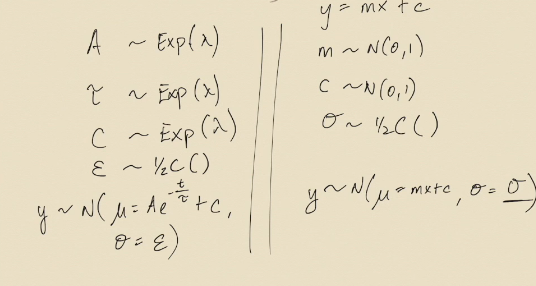 A ~ Exp(λ)
τ ~ Exp(λ)
C ~ Exp(λ)
ε ~ ½C()
y ~ N(μ = Ae^{-t/τ} + C,
σ = ε)
y = mx + c
m ~ N(0,1)
c ~ N(0,1)
σ ~ ½C()
y ~ N(μ = mx+c, σ = σ)